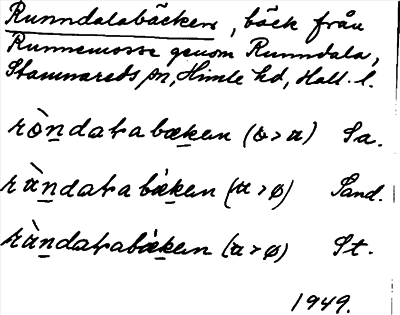 Runndalabäcken, bäck från
Runnemosse genom Runndala,
Stamnareds sn, Himle hd, Hall. l.
rò̱ndaɫabæḵen (o > u) Sa.
rùṉdaɫabæ̀ḵen (u > ø) Sand.
rùṉdaɫabæ̀ḵen (u > ø) St.
1949.